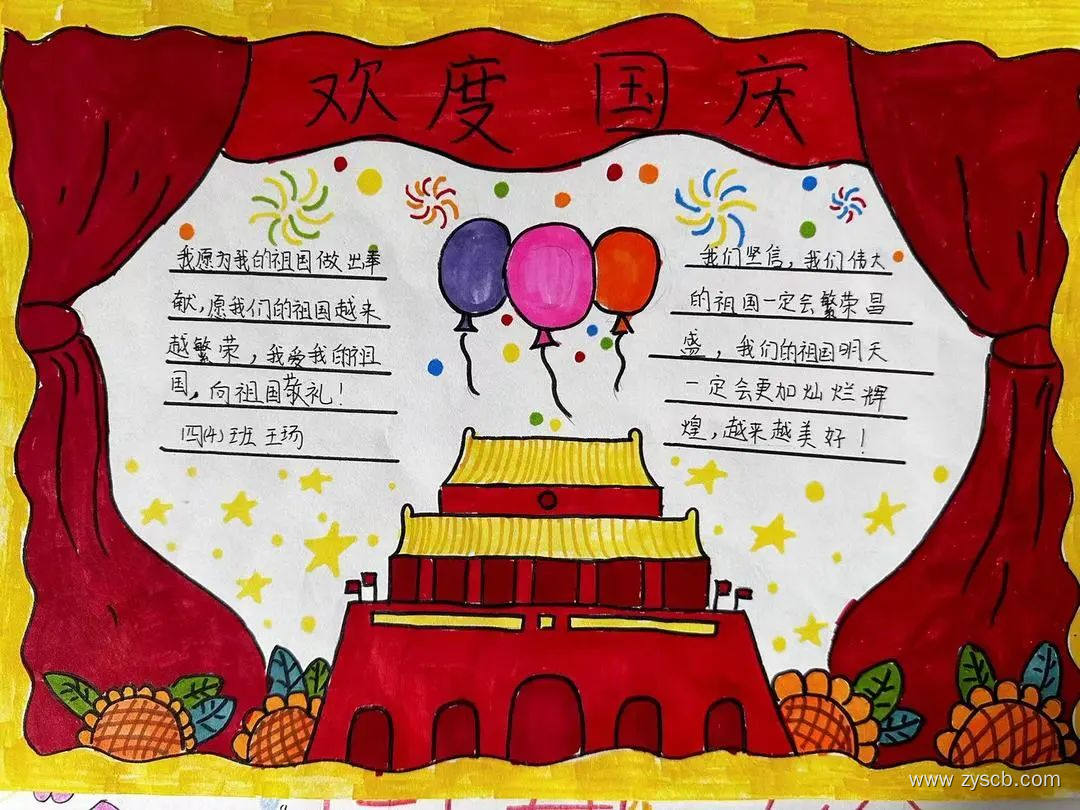 欢度国庆
我愿为我的祖国做出奉
献,愿我们的祖国越来
越繁荣,我爱我的祖
国,向祖国敬礼!
四(4)班王场
我们坚信,我们伟大
的祖国一定会繁荣昌
盛,我们的祖国明天
一定会更加灿烂辉
煌,越来越美好!
www.zyscb.com